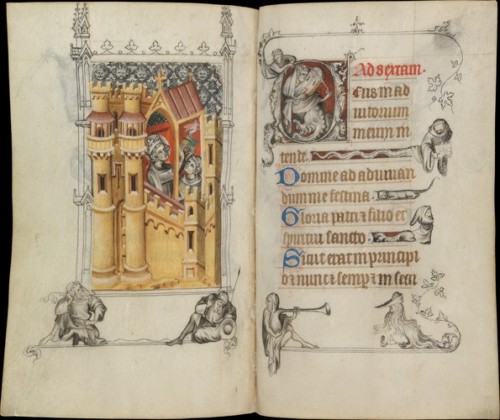 Ad sextam.
Deus in ad
iutorium
meum in
tende.
Domine ad adiuuan
dum me festina.
Gloria patri & filio et
spiritui sancto.
Sicut erat in principi
o & nunc & semper & in secu